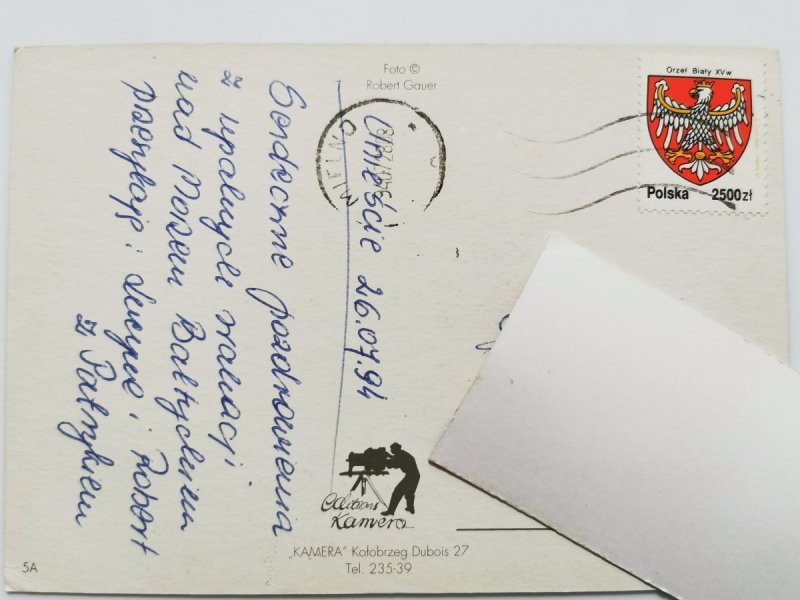 Foto ©
Robert Gauer
Orzeł Biały XVw
Polska 2500zł
MIELNO
Unieście 26.07.94
Serdeczne pozdrowienia
z upalnych wakacji
nad Morzem Bałtyckim
przesyłają: Lucyna i Robert
z Patrykiem
Editions
Kamera
„KAMERA" Kołobrzeg Dubois 27
Tel. 235-39
5A